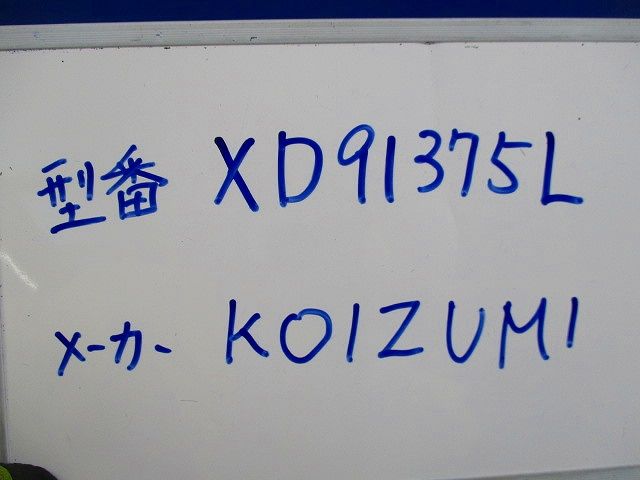 型番 XD91375L
メーカー KOIZUMI